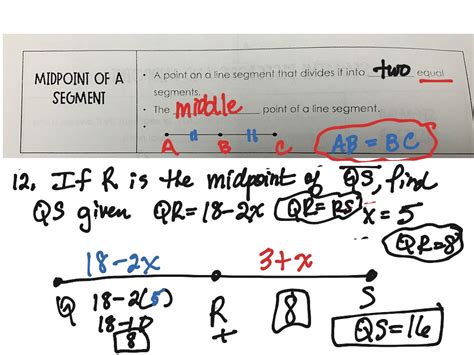 MIDPOINT OF A SEGMENT
• A point on a line segment that divides it into two equal
segments.
• The middle point of a line segment.
A B C
AB = BC
12. If R is the midpoint of QS, find
QS given QR=18-2x QR=RS x=5
QR=8
18-2x 3+x
Q R S
18-2(5)
18-10
8
8
QS=16